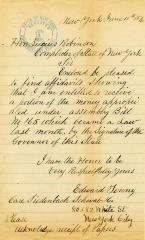 New York June 11th
Hon Lucius Robinson
Comptroller of State of New York
Sir
Enclosed be pleased
to find affidavits showing
that I am entitled to receive
a portion of the money appropri
ated under assembly Bill
No 165 which became a law
last month, by the signature of the
Governor of this State
I have the Honor to be
Very Respectfully yours
Edward Fenny
Care
No 182 White St
New York City
Please
acknowledge receipt of Papers